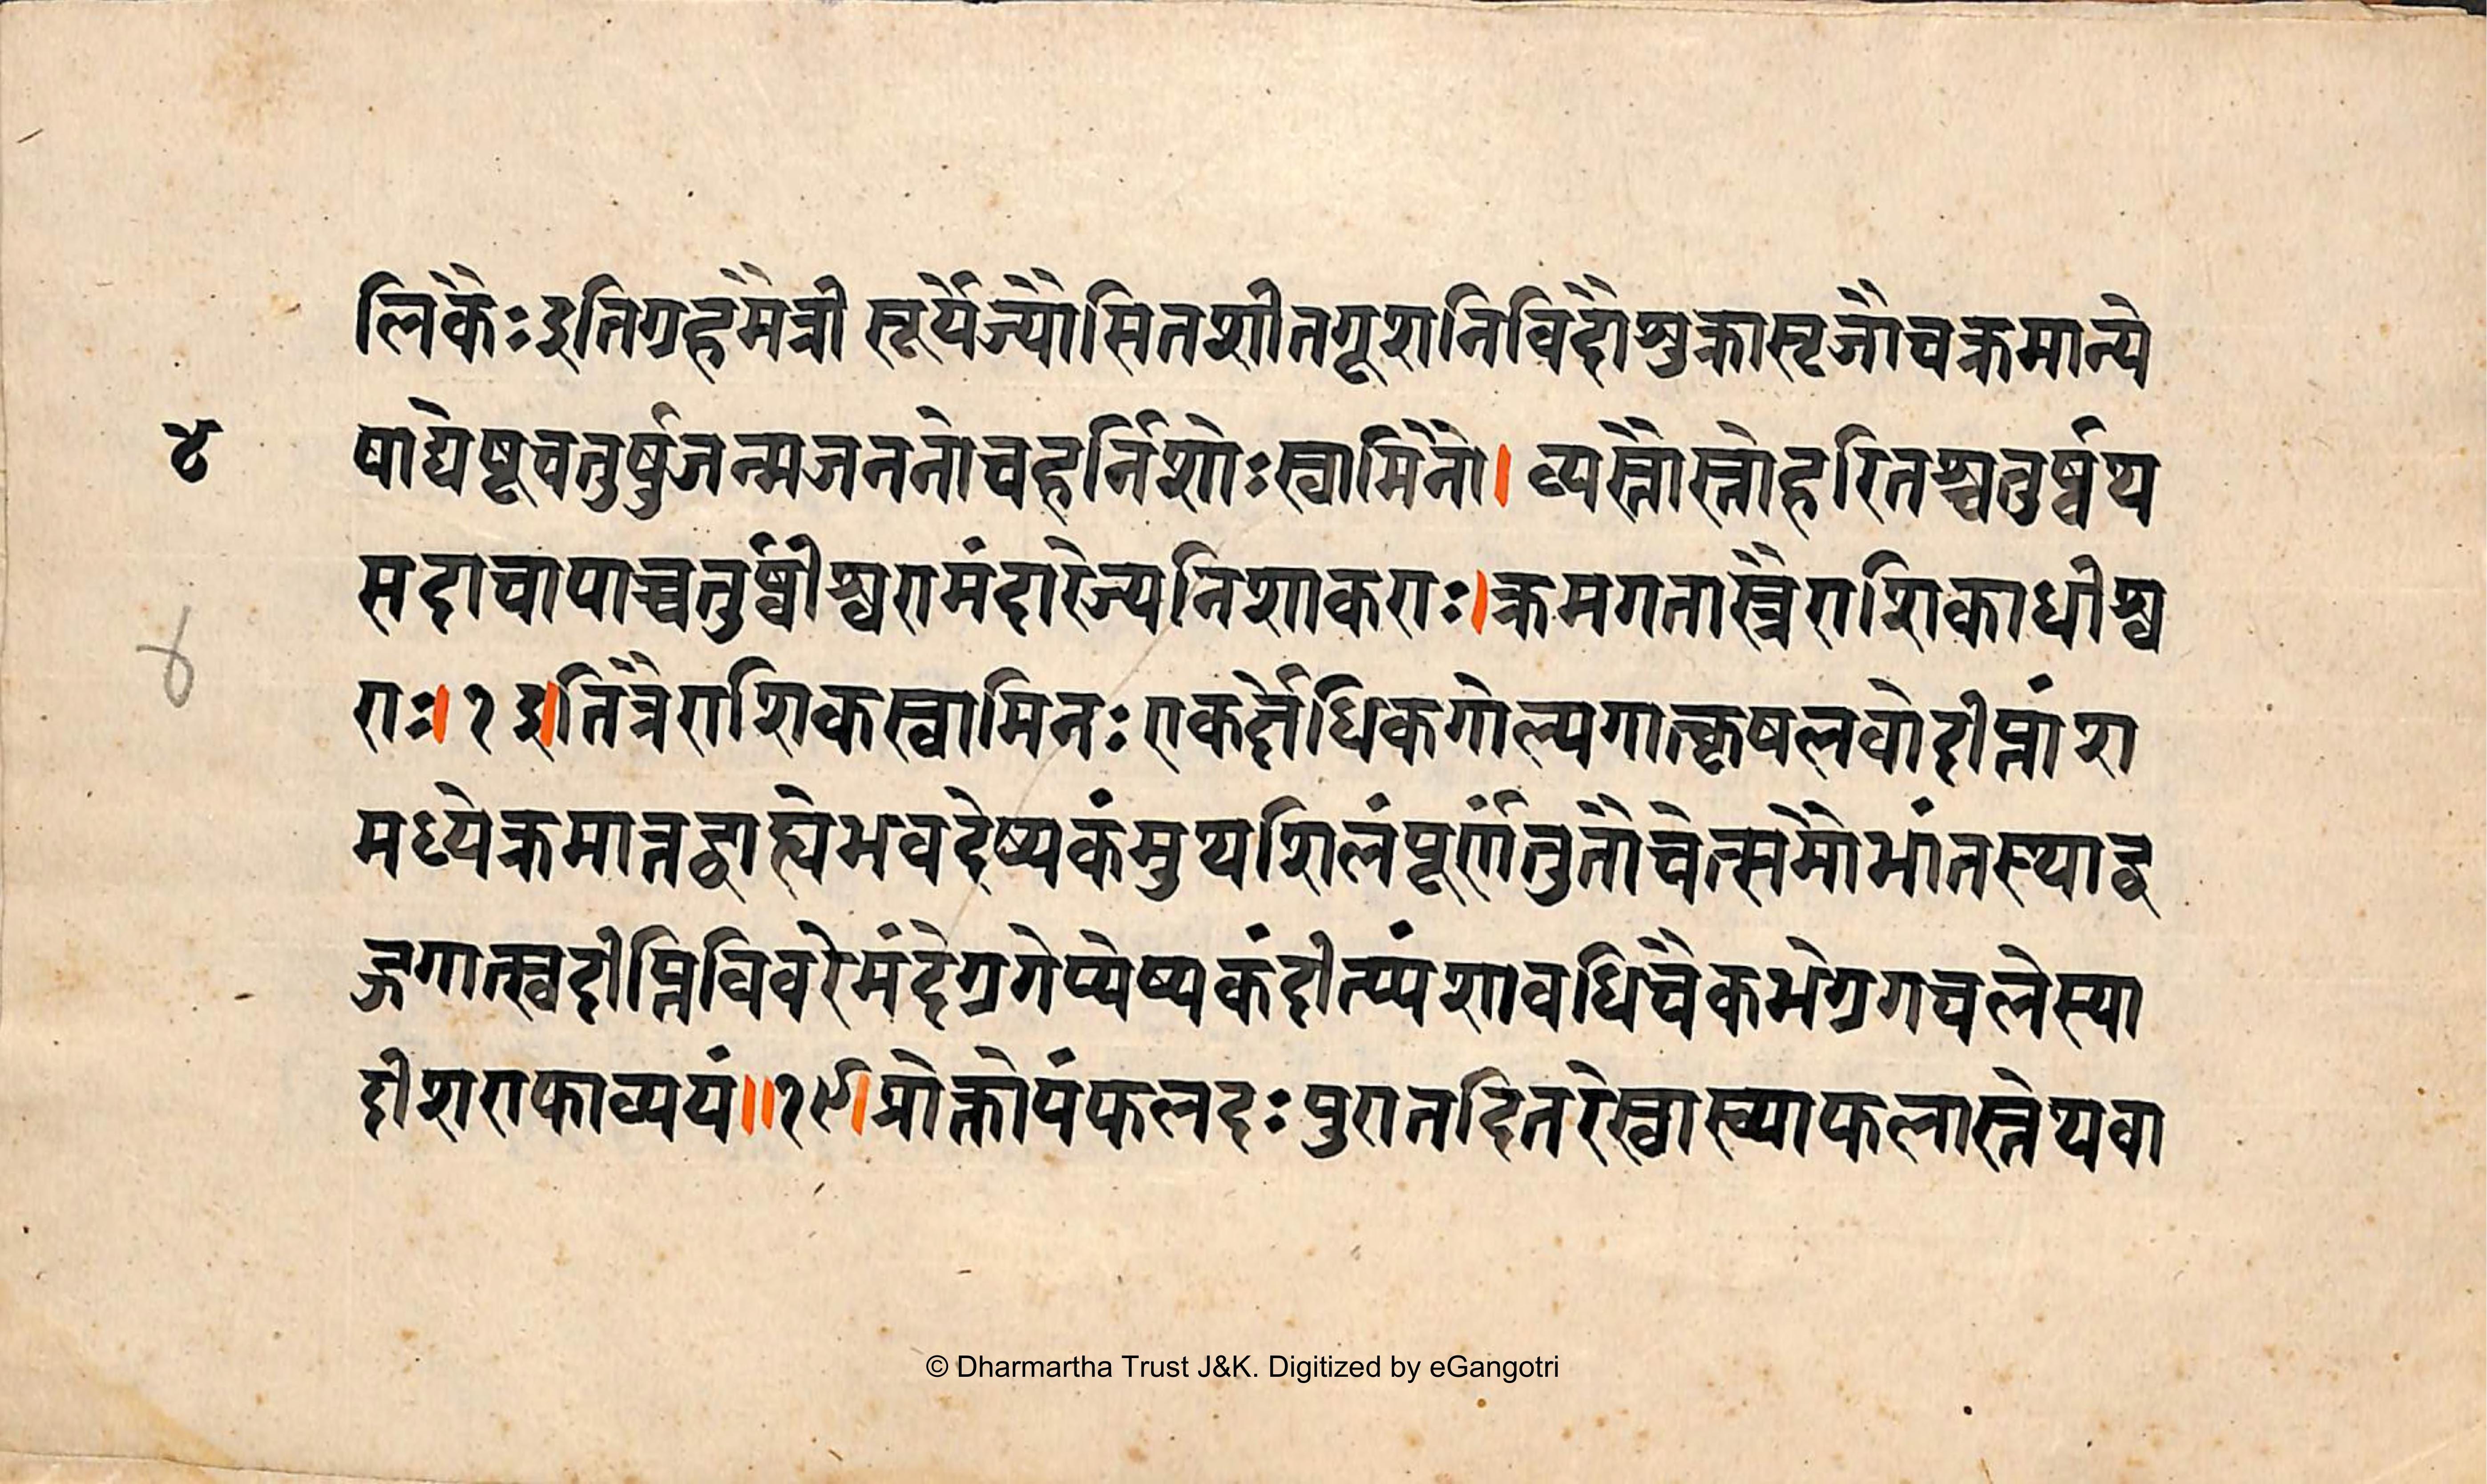 लिकैः इतिग्रहमैत्री सूर्येज्यौसितशीतगूशनिविदौशुक्रासृजौचक्रमान्ये
४
षाद्येषूचतुर्षुजन्मजननोचहर्निशोःस्वामिनौ। व्यस्तौस्तोहरितश्चतुर्ष्वथ
सदाचापाच्चतुर्ष्वीश्वरामंदारेज्यनिशाकराः।क्रमगतास्त्रैराशिकाधीश्व
४
राः।१ इ।तित्रैराशिकस्वामिनः एकर्क्षेधिकगोल्पगात्कृषलवोदीप्तांश
मध्येक्रमान्नद्वाह्येभवदेष्यकंमुथशिलंपूर्णंतुतौचेत्समौभांतस्थाद्द्व
जगात्स्वदीप्तिविवरेमंदेग्रगेप्येष्यकंदीत्प्यंशावधिचैकभेग्रगचलेस्या
दीशराफाव्ययं॥१९।प्रोक्तोयंफलदःपुरातदितरेस्वाख्याफलास्तेथवा
© Dharmartha Trust J&K. Digitized by eGangotri